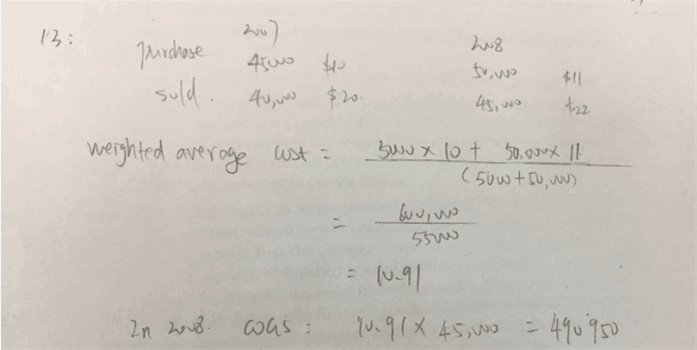 13:
2007 2008
purchase 45000 $10 50,000 $11
sold. 40,000 $20. 45,000 $22
weighted average cost = 5000 × 10 + 50,000 × 11
(5000 + 50,000)
= 600,000
55000
= 10.91
In 2008. COGS: 10.91 × 45,000 = 490'950